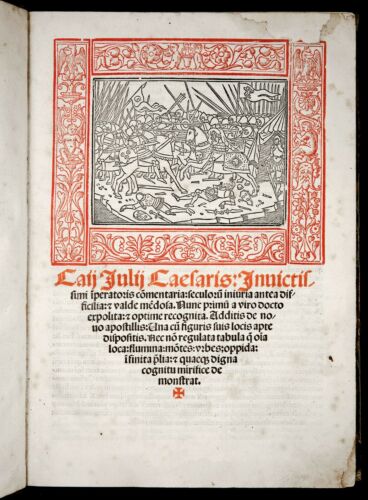 Caij Julij Caesaris: Invictis/
simi īperatoris cōmentaria: seculoꝝ iniuria antea dif/
ficilia: ⁊ valde mēdosa. Nunc primū a viro docto
expolita: ⁊ optime recognita. Additis de no/
uo apostillis: Una cū figuris suis locis apte
dispositis. Nec nō regulata tabula q̄ oīa
loca: flumina: mōtes: vrbes: oppida:
īfinita p̄lia: ⁊ quaecqꝫ digna
cognitu mirifice de
monstrat.